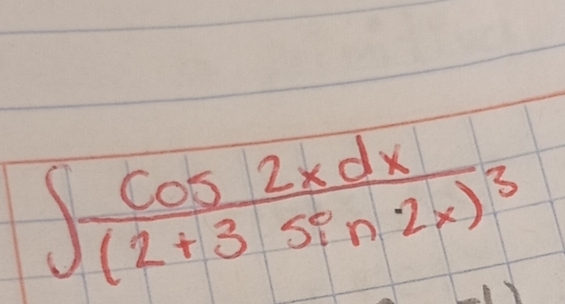 ∫ cos 2x dx
(2 + 3 sin 2x)³